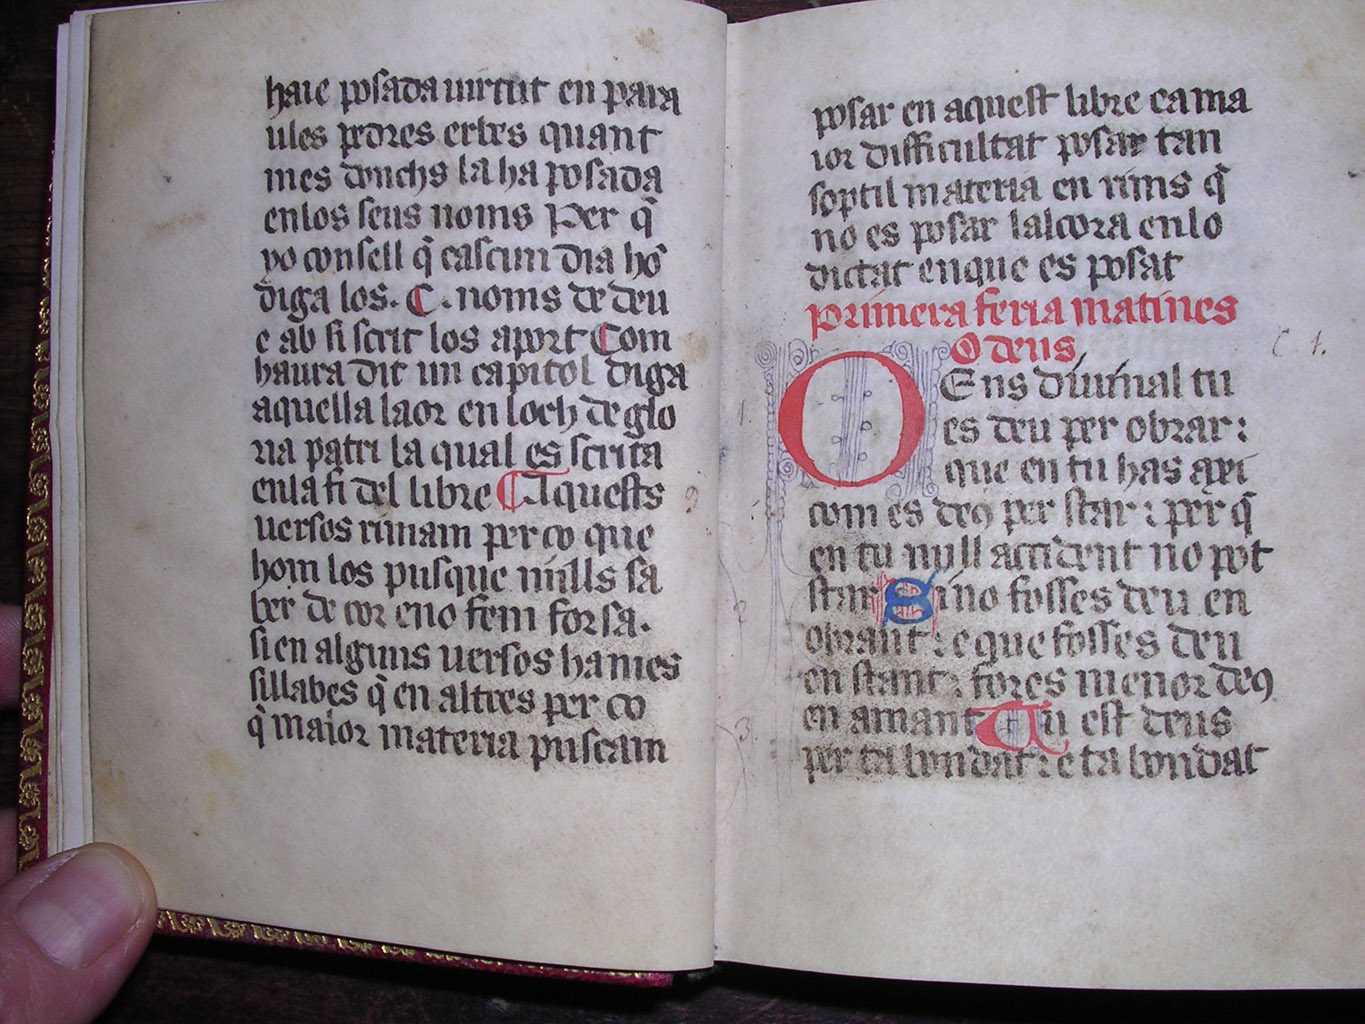 haie posada uirtut en para
ules pedres erbes quant
mes donchs la ha posada
enlos seus noms Per q̃
yo consell q̃ cascun dia hõ
diga los. C. noms de deu
e ab si scrit los aport Com
haura dit un capitol diga
aquella laor en loch de glo
ria patri la qual es scrita
enla fi del libre Aquests
uersos rimam per co que
hom los pusque mills sa
ber de cor e no fem forsa.
si en alguns uersos ha mes
sillabes q̃ en altres per co
q̃ maior materia puscam
posar en aquest libre ca ma
ior difficultat posar tan
soptil materia en rims q̃
no es posar lalcora enlo
dictat en que es posat
primera feria matines
O deus
C 1.
O Ens diuinal tu
1.
es deu per obrar:
que en tu has axi
com es deꝯ per star: per q̃
en tu null accident no pot
star Si no fosses deu en
2
obrant: e que fosses deu
en stant: fores menor deꝯ
en amant Tu est deus
3.
per ta bondat: e ta bondat